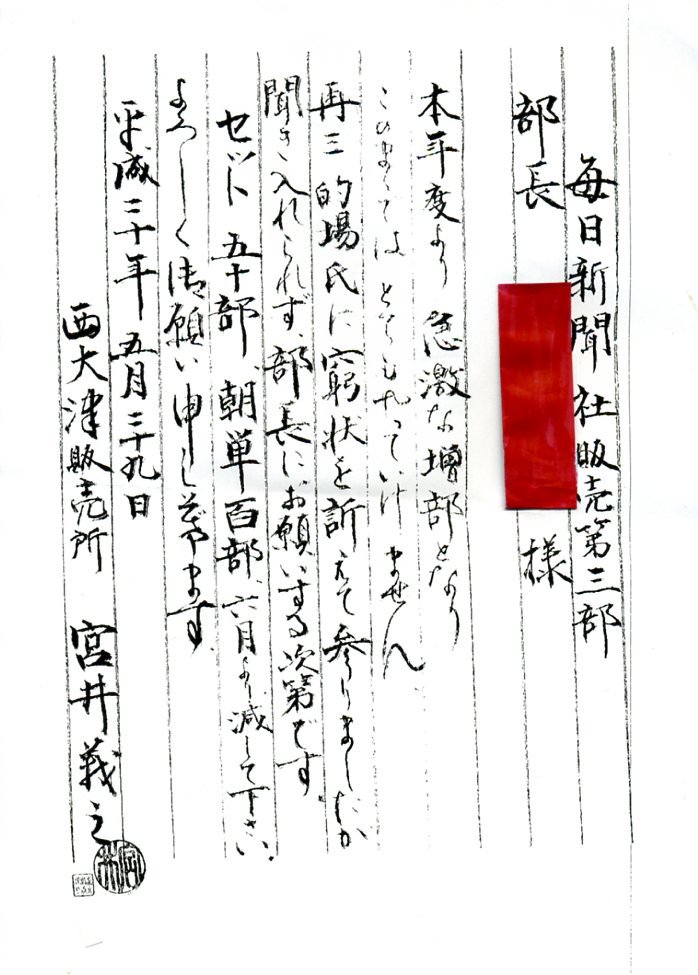 毎日新聞社販売第三部
部長 様
本年度より急激な増部となり
このままではとてもやっていけません
再三的場氏に窮状を訴えて参りましたが
聞き入れられず、部長にお願いする次第です
セット五十部、朝単百部、六月より減して下さい、
よろしく御願い申し上げます
平成二十年五月二十九日
西大津販売所 宮井義之